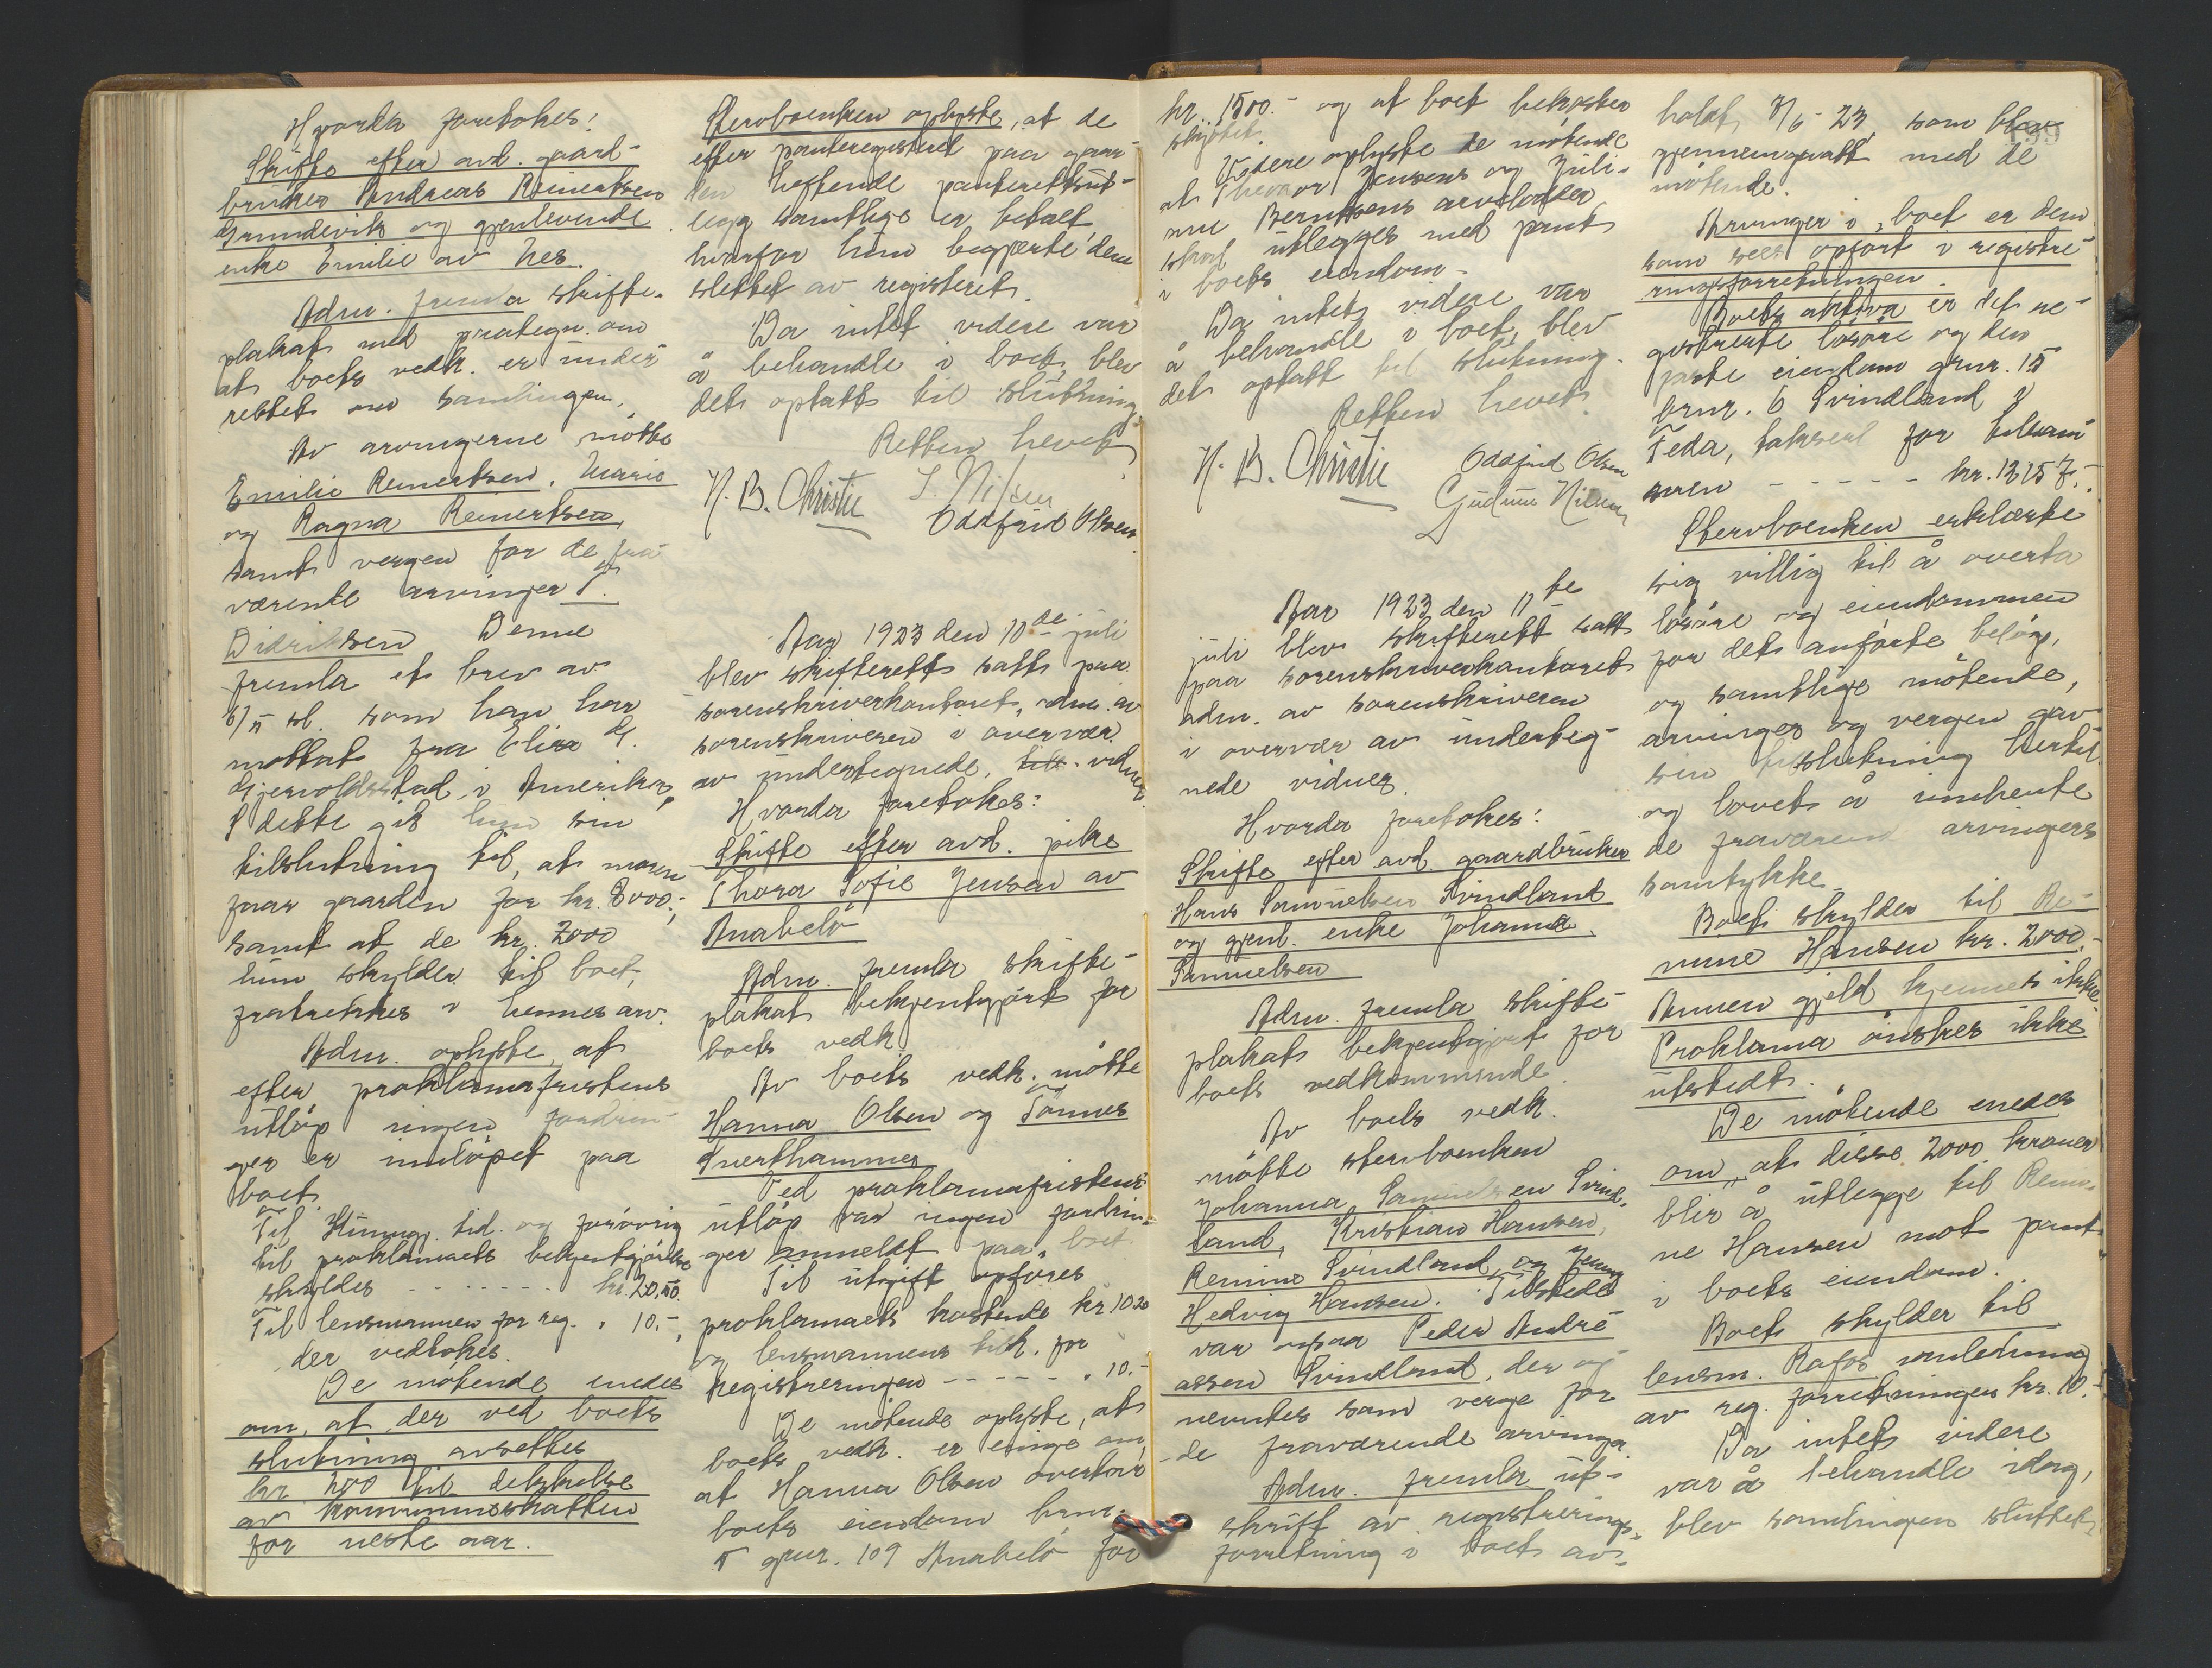 Hvorda foretokes:
Skifte efter avd. gaard-
bruker Andreas Reinertsen
Grundevik og gjenlevende
enke Emilie av Nes.
Adm. fremla skifte-
plakat med paategn. om
at boets vedk. er under
rettet om samlingen.
Av arvingerne møtte
Emilie Reinertsen, Marie
og Ragna Reinertsen,
samt vergen for de fra
værende arvinger T.
Didriksen Denne
fremla et brev av
6/5 sl. som han har
mottat fra Elisa
i Amerika,
I dette gir hun sin
tilslutning til, at moren
faar gaarden for kr. 8000.-,
samt at de kr. 2000
hun skylder til boet,
fratrekkes i hennes arv.
Adm. oplyste, at
efter proklamafristens
utløp ingen fordrin-
ger er innløpet paa
boet.
Til Kunngj. tid. og forøvrig
til proklamaets bekjentgjørelse
skyldes - - - - - - kr. 20,50.
Til lensmannen for reg. " 10.-,
der vedtokes.
De møtende enedes
om, at der ved boets
slutning avsettes
kr 200 til dekkelse
av kommuneskatten
for neste aar.
Stervboenken oplyste, at de
efter panteregistret paa gaar-
den heftende panterettsut-
legg samtlige er betalt,
hvorfor hun begjærte dem
slettet av registeret.
Da intet videre var
å behandle i boet, blev
det optatt til slutning.
Retten hevet
N. B. Christie S. Nilsen
Oddfrid Olsen.
Aar 1923 den 10de juli
blev skifterett satt paa
sorenskriverkontoret, adm. av
sorenskriveren i overvær
av undertegnede, vidner.
Hvorda foretokes:
Skifte efter avd. pike
Thora Sofie Jensen av
Anabelø
Adm. fremla skifte-
plakat bekjentgjørt for
boets vedk.
Av boets vedk. møtte
Hanna Olsen og Tønnes
Sverthammer
Ved proklamafristens
utløp var ingen fordrin-
ger anmeldt paa boet.
Til utgift opføres
proklamaets kostende kr 10.20
og lensmannens tilk. for
registreringen - - - - - " 10.-
De møtende oplyste, at
boets vedk. er enige om
at Hanna Olsen overtar
boets eiendom brnr.
5 gnr. 109 Anabelø for
kr. 1500.- og at boet bekoster
skjøtet.
Videre oplyste de møtende
at Jensens og Juli-
ane Berntsens arvelodder
skal utlegges med pant
i boets eiendom.
Da intet videre var
å behandle i boet, blev
det optatt til slutning.
Retten hevet.
N. B. Christie Oddfrid Olsen
Gudrun Nilsen
Aar 1923 den 11te
juli blev skifterett satt
paa sorenskriverkontoret
adm. av sorenskriveren
i overvær av underteg-
nede vidner.
Hvorda foretokes:
Skifte efter avd. gaardbruker
Hans Samuelsen Svindland
og gjenl. enke Johanna
Samuelsen
Adm. fremla skifte-
plakat bekjentgjørt for
boets vedkommende.
Av boets vedk.
møtte stervboenken
Johanna Samuelsen Svind-
land, Kristian Hansen,
Remine Svindland og Jenny
Hedvig Hansen. Tilstede
var ogsaa Peder André-
assen Svindland, der og
nevntes som verge for
de fraværende arvinger
Adm. fremla ut-
skrift av registrerings-
forretning i boet av-
holdt 7/6 23, som blev
gjennemgaatt med de
møtende.
Arvinger i boet er dem
som sees opført i registre-
ringsforretningen.
Boets aktiva er det re-
gistrerte løsøre og den
faste eiendom gnr. 15
brnr. 6 Svindland i
Feda, taksert for tilsam-
men - - - - - kr. 1215 7.-
Stervboenken erklærte
sig villig til å overta
løsøre og eiendommen
for det anførte beløp,
og samtlige møtende,
arvinger og vergen gav
sin tilslutning hertil
og lovet å innhente
de fraværende arvingers
samtykke.
Boet skylder til Re-
mine Hansen kr. 2000.-
Annen gjeld kjennes ikke
Proklama ønskes ikke
utstedt.
De møtende enedes
om, at disse 2000 kroner
blir å utlegge til Remi-
ne Hansen mot pant
i boets eiendom.
Boet skylder til
lensm. Rafos anledning
av reg. forretningen kr. 10.-
Da intet videre
var å behandle idag,
blev samlingen sluttet.